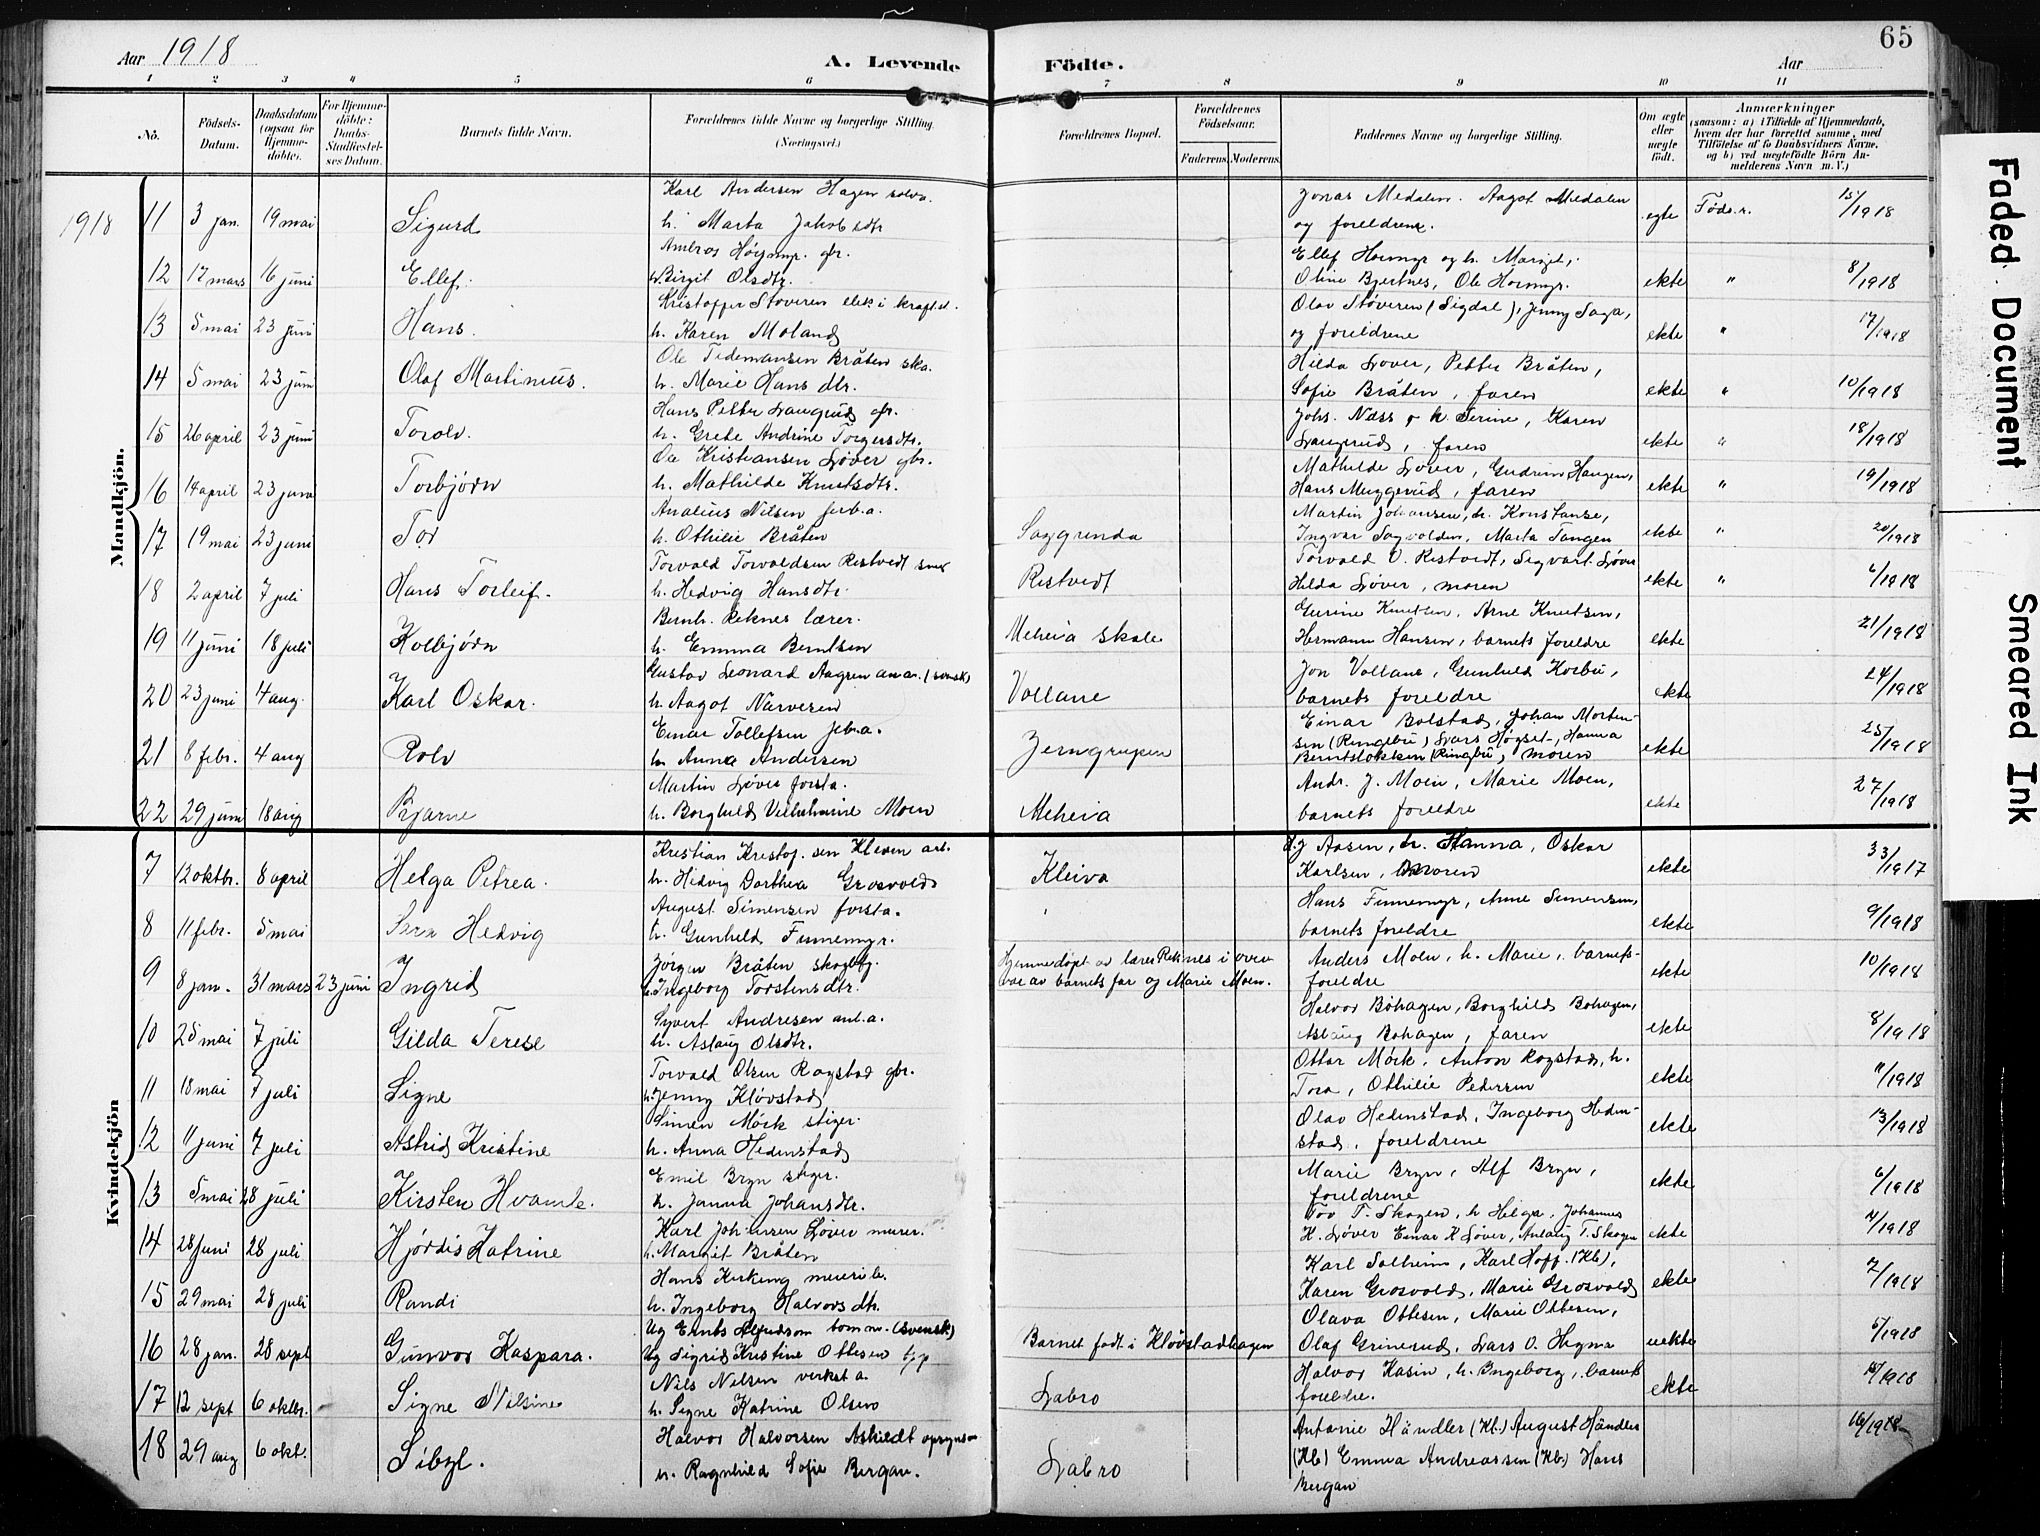 Aar 1918
A. Levende Födte.
Aar
65
1 2 3 4 5 6 7 8 9 10 11
No.
Födsels-Datum.
Daabsdatum (ogsaa for Hjemme-döbte).
For Hjemme-döbte: Daabs-Stadfæstel-ses Datum.
Barnets fulde Navn.
Forældrenes fulde Navne og borgerlige Stilling. (Næringsvei.)
Forældrenes Bopæl.
Forældrenes Födselsaar.
Faderens. Moderens.
Faddernes Navne og borgerlige Stilling.
Om ægte eller uægte födt.
Anmærkninger
(saasom: a) i Tilfælde af Hjemmedaab, hvem der har forrettet samme, med Tilföielse af to Daabsvidners Navne, og b) ved uegtefödte Börn An-melderens Navn m. V.)
Mandkjön.
1918 11 3 jan. 19 mai Sigurd Karl Andersen Hagen
h. Marta Jakobsdtr
Jonas Medalen. Aagot Medalen
og foreldrene. egte Føds.r. 15/1918
12 17 mars 16 juni Ellef. Ambros Høymyr. gbr.
h. Birgit Olsdtr.
Ellef Hormyr og h. Margit,
Oline Bjertnes, Ole Hormyr. ekte " 8/1918
13 5 mai 23 juni Hans. Kristoffer Støveren elek i kraftst.
h. Karen Moland
Olav Støveren (Sigdal), Jenny Saga,
og foreldrene ekte " 17/1918
14 5 mai 23 juni Olaf Martinius. Ole Tidemansen Bråten sko.
h. Marie Hans dtr.
Hilda Løver, Petter Bråten,
Sofie Bråten, faren ekte " 10/1918
15 26 april 23 juni Torolv. Hans Petter Langrud gbr.
h. Grete Andrine Torgersdtr.
Johs. Næss & h. Serine, Karen
Langerud, faren ekte " 18/1918
16 14 april 23 juni Torbjørn Ole Kristiansen Løver gbr.
h. Mathilde Knutsdtr.
Mathilde Løver, Gudrun Haugen,
Hans Muggerud, faren ekte " 19/1918
17 19 mai 23 juni Tor Analius Nilsen jerb.a.
h. Othilie Bråten
Saggrenda
Martin Johansen, h. Konstanse,
Ingvar Sagvolden, Marta Tangen ekte " 20/1918
18 2 april 7 juli Hans Torleif. Torvald Torvaldsen Ristvedt
h. Hedvig Hansdtr.
Ristvedt
Torvald O. Ristvedt, Sigvart Løver
Hilda Løver, moren ekte " 6/1918
19 11 juni 18 juli Kolbjørn Bernh. Reknes lærer.
h. Emma Berntsen
Meheia skole
Gurine Knutsen, Arne Knutsen,
Hermann Hansen, barnets foreldre ekte 21/1918
20 23 juni 4 aug. Karl Oskar. Gustav Leonard Aagren (svensk)
h. Aagot Narvesen
Vollane
Jon Vollane, Gunhild Korbu,
barnets foreldre ekte 24/1918
21 8 febr. 4 aug Rolv Einar Tollefsen jeb.a.
h. Anna Andersen
Jerngrupen
Einar Bolstad, Johan Morten-
sen (Ringebu) Lars Høgset, Hanna
Berntslokken (Ringbu), moren ekte 25/1918
22 29 juni 18 aug Bjarne Martin Løver forsta.
h. Borghild Vilhelmine Moen
Meheia
Andr. J. Moen, Marie Moen,
barnets foreldre ekte 27/1918
Kvindekjön
7 12 oktbr. 8 april Helga Petrea. Kristian Kristof. sen Kleven arb.
h. Hedvig Dorthea Grosvold
Kleiva
Aasen, h. Hanna, Oskar
Karlsen, moren ekte 33/1917
8 11 febr. 5 mai Sara Hedvig August Simensen forsta.
h. Gunhild Finnemyr.
Hans Finnemyr, Anne Simensen,
barnets foreldre ekte 9/1918
9 8 jan. 31 mars 23 juni Ingrid Jørgen Bråten
h. Ingeborg Torstensdtr.
Hjemmedøpt av lærer Reknes i over
vær av barnets far og Marie Moen.
Anders Moen, h. Marie, barnets-
foreldre ekte 10/1918
10 25 mai 7 juli Gilda Terese Syvert Andresen anl.a.
h. Aslaug Olsdtr.
Halvor Bøhagen, Borghild Bøhagen,
Aslaug Bohagen, faren ekte 8/1918
11 18 mai 7 juli Signe Torvald Olsen Rogstad gbr.
h. Jenny Kløvstad
Ottar Mörk, Anton Rogstad, h.
Tora, Othilie Pedersen ekte 11/1918
12 11 juni 7 juli Astrid Kristine Simen Mörk stiger.
h. Anna Hedenstad
Olav Hedenstad, Ingeborg Heden-
stad, foreldrene ekte 13/1918
13 5 mai 28 juli Kirsten Hvamb. Emil Bryn stiger.
h. Janna Johansdtr.
Marie Bryn, Alf Bryn,
foreldrene ekte 6/1918
14 28 juni 28 juli Hjørdis Katrine Karl Johansen Løver murer.
h. Margit Bråten
Tov T. Skogen, h Helga, Johannes
K. Løver Einar K Løver, Aslaug T. Skogen ekte 4/1918
15 29 mai 28 juli Randi Hans Kirkeng meierib.
h. Ingeborg Halvors dtr.
Karl Solheim, Karl Hoff (Kb),
Karen Grosvold, Marie Grosvold ekte 7/1918
16 28 jan. 28 sept Gunvor Kaspara. Ug Ernts Alfredsom tomm. (svensk)
Ug Sigrid Kristine Ottesen tjp
Barnet født i Kløvstadhagen
Olava Ottesen, Marie Ottesen,
Olaf Grinerud, Lars O. Hegna uekte 5/1918
17 12 sept 6 oktbr. Signe Nilsine Nils Nilsen verkst a.
h. Signe Katrine Olsen
Labro
Halvor Kasin, h. Ingeborg, barnets
foreldre. ekte 14/1918
18 29 aug 6 okt. Sibyl. Halvor Halvorsen Askildt opsyns-
h. Ragnhild Sofie Bergan.
Labro
Antonie Händler (Kb.) August Händler
(Kb) Emma Andreassen (Kb) Hans
Bergan
16/1918
Faded Document
Smeared Ink